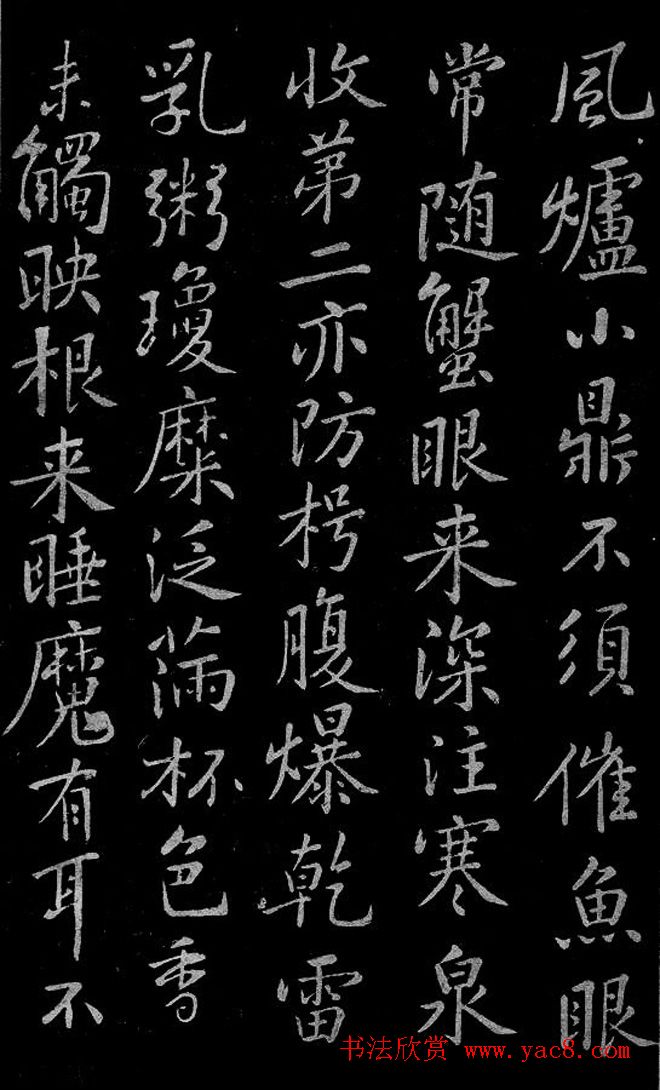 風爐小鼎不須催魚眼
常随蟹眼来深注寒泉
收苐二亦防枵腹爆乾雷
乳粥瓊糜泛滿杯色香
未觸映根来睡魔有耳不
书法欣赏 www.yac8.com